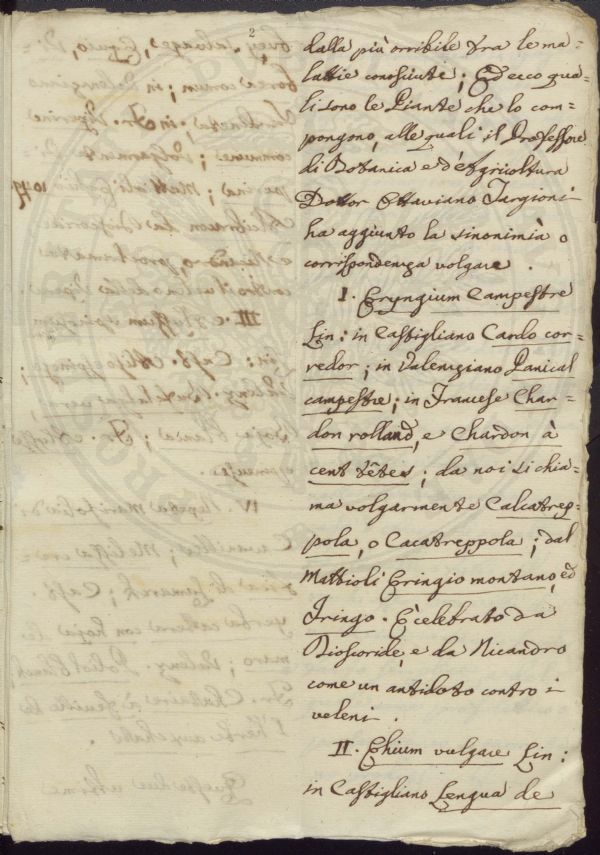 2
dalla più orribile tra le ma=
lattie conosciute; Ed ecco qua=
li sono le Piante che lo com=
pongono, alle quali il Professore
di Botanica e d'Agricoltura
Dottor Ottaviano Targioni
ha aggiunto la sinonimia o
corrispondenza volgare.
I. Eryngium Campestre
Lin: in Castigliano Cardo cor=
redor; in Valenziano Panical
campestre; in Francese Char=
don rolland, e Chardon à
cent têtes; da noi si chia=
ma volgarmente Calcatrep=
pola, o Cacatreppola; dal
Mattioli Eringio montano, ed
Iringo. È celebrato da
Dioscoride, e da Nicandro
come un antidoto contro i
veleni.
II. Echium vulgare Lin:
in Castigliano Lengua de